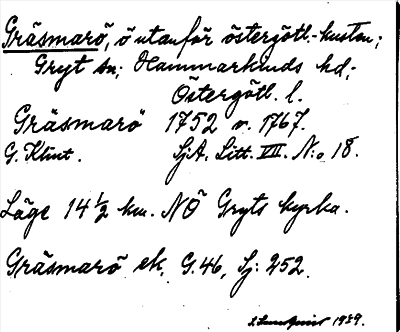 Gräsmarö, ö utanför östergötl.-kusten;
Gryt sn; Hammarkinds hd,-
Östergötl. l.
Gräsmarö 1752 o. 1767.
G. Klint. SjA. Litt. VII. N:o 18.
Läge 14 1/2 km. NÖ Gryts kyrka.
Gräsmarö ek. G. 46, Sj: 252.
1939.